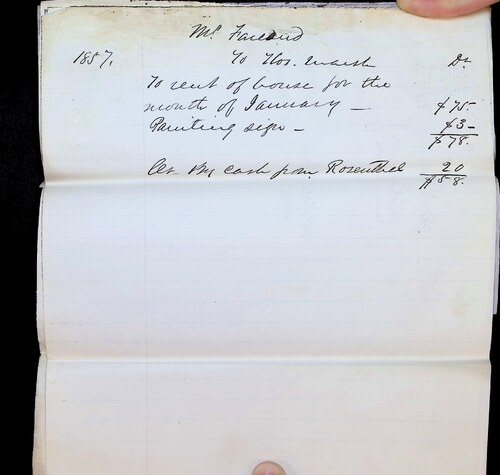 Mr Farland
1857. To Thos. Marsh Dr
To rent of house for the
month of January — $75-
Painting sign — $3-
$78.
Cr By cash from Rosenthal 20
$58.